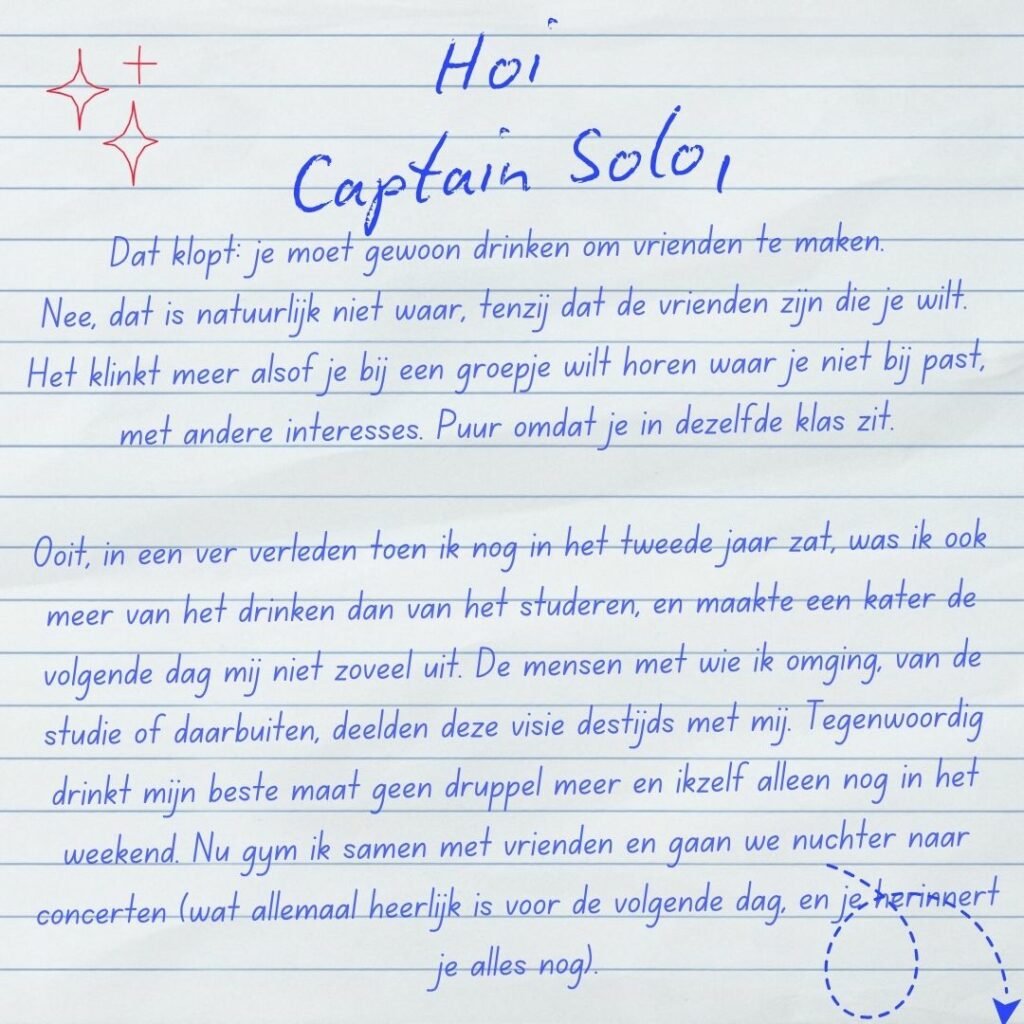 Hoi
Captain Solo,
Dat klopt: je moet gewoon drinken om vrienden te maken.
Nee, dat is natuurlijk niet waar, tenzij dat de vrienden zijn die je wilt.
Het klinkt meer alsof je bij een groepje wilt horen waar je niet bij past,
met andere interesses. Puur omdat je in dezelfde klas zit.
Ooit, in een ver verleden toen ik nog in het tweede jaar zat, was ik ook
meer van het drinken dan van het studeren, en maakte een kater de
volgende dag mij niet zoveel uit. De mensen met wie ik omging, van de
studie of daarbuiten, deelden deze visie destijds met mij. Tegenwoordig
drinkt mijn beste maat geen druppel meer en ikzelf alleen nog in het
weekend. Nu gym ik samen met vrienden en gaan we nuchter naar
concerten (wat allemaal heerlijk is voor de volgende dag, en je herinnert
je alles nog).